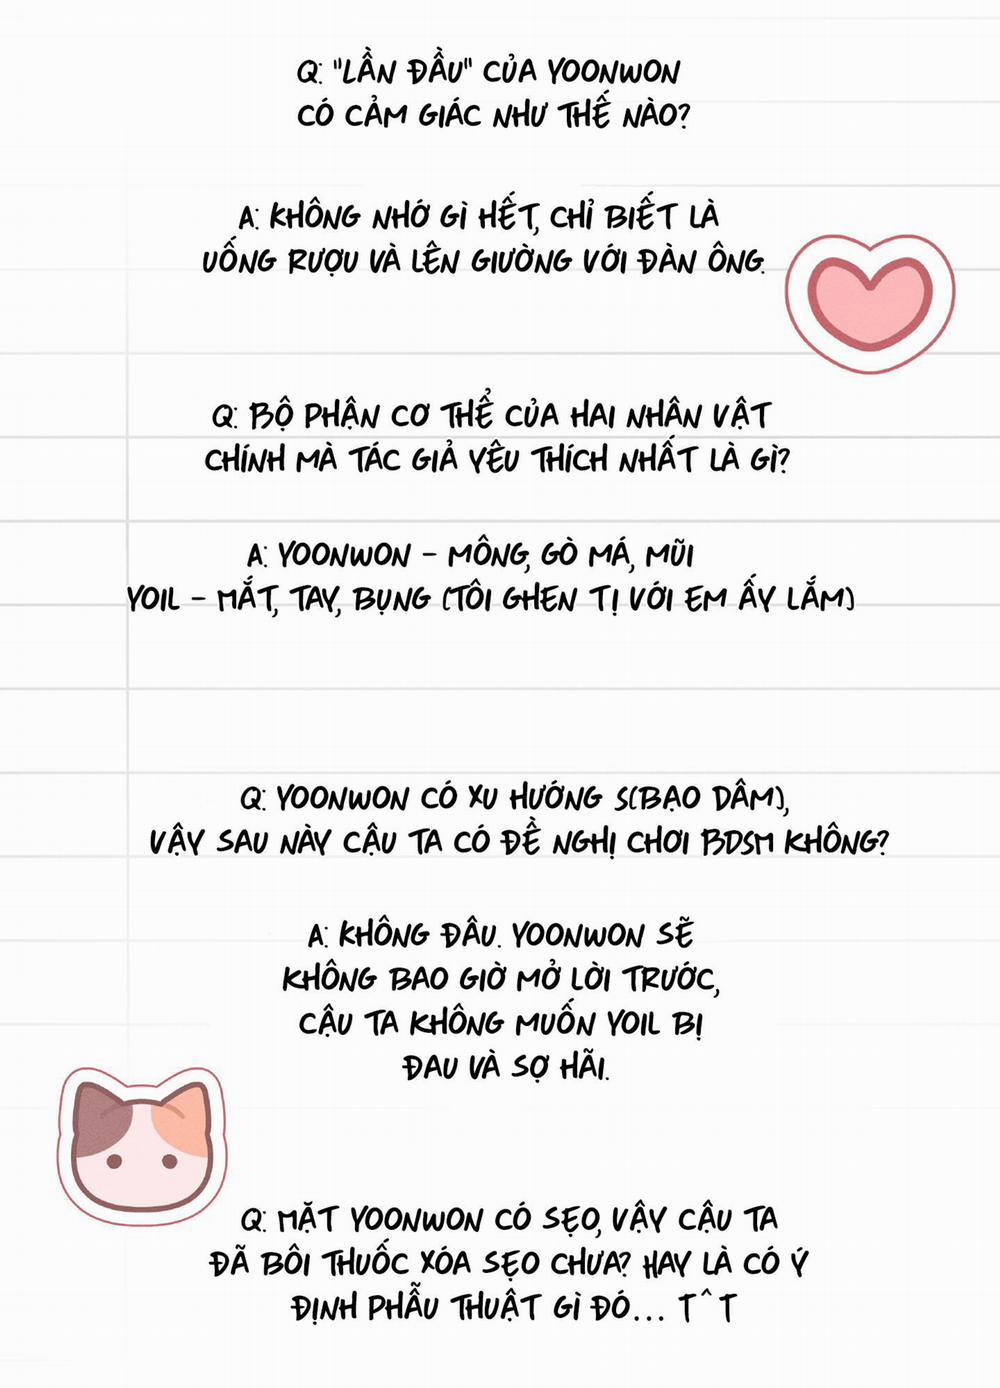 Q: "LẦN ĐẦU" CỦA YOONWON
CÓ CẢM GIÁC NHƯ THẾ NÀO?
A: KHÔNG NHỚ GÌ HẾT, CHỈ BIẾT LÀ
UỐNG RƯỢU VÀ LÊN GIƯỜNG VỚI ĐÀN ÔNG.
Q: BỘ PHẬN CƠ THỂ CỦA HAI NHÂN VẬT
CHÍNH MÀ TÁC GIẢ YÊU THÍCH NHẤT LÀ GÌ?
A: YOONWON - MÔNG, GÒ MÁ, MŨI
YOIL - MẮT, TAY, BỤNG (TÔI GHEN TỊ VỚI EM ẤY LẮM)
Q: YOONWON CÓ XU HƯỚNG S(BẠO DÂM),
VẬY SAU NÀY CẬU TA CÓ ĐỀ NGHỊ CHƠI BDSM KHÔNG?
A: KHÔNG ĐÂU. YOONWON SẼ
KHÔNG BAO GIỜ MỞ LỜI TRƯỚC,
CẬU TA KHÔNG MUỐN YOIL BỊ
ĐAU VÀ SỢ HÃI.
Q: MẶT YOONWON CÓ SẸO, VẬY CẬU TA
ĐÃ BÔI THUỐC XÓA SẸO CHƯA? HAY LÀ CÓ Ý
ĐỊNH PHẪU THUẬT GÌ ĐÓ... T^T